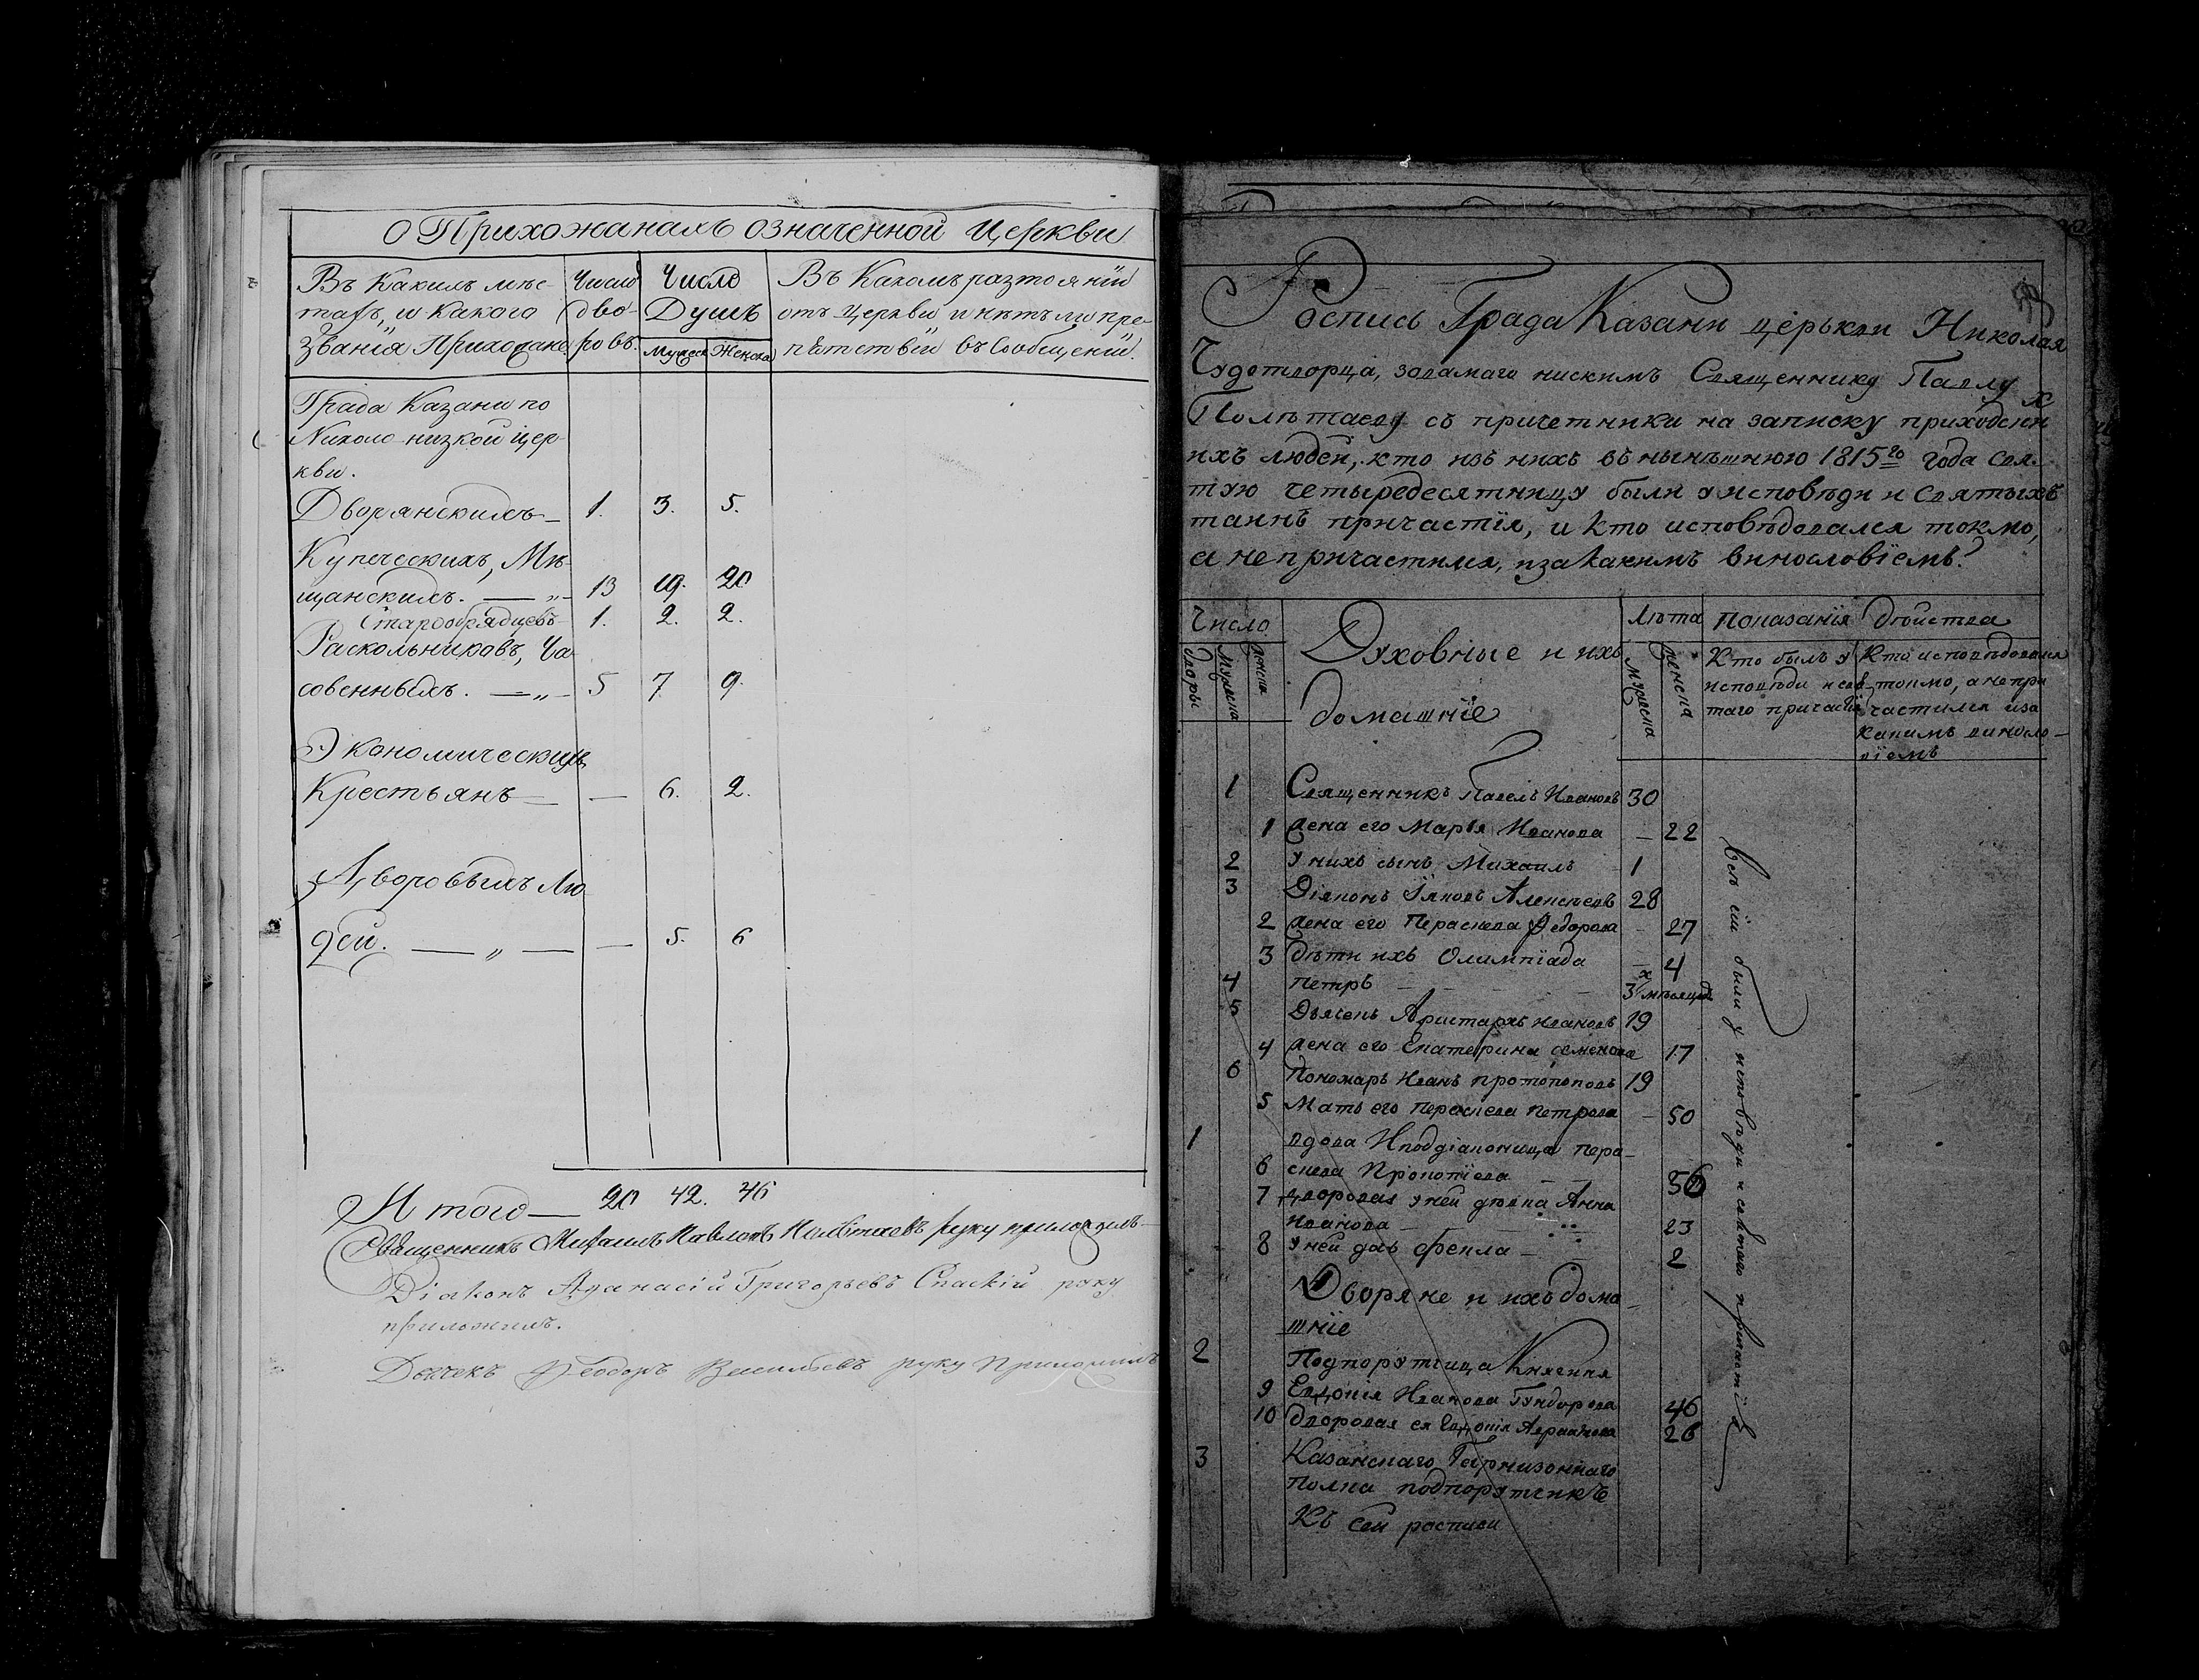 О Прихожанахъ означенной Церкви
Въ Какихъ мѣс-
тахъ, и какого
Званія Прихожане.
Число
дво-
ровъ.
Число
Душъ
Мужеск
Женска
Въ Какомъ разтояніи
отъ Церкви и нѣтъ ли пре-
пѣтствій въ Сообщеніи.
Града Казани по
Николо-низкой цер-
кви.
Дворянскихъ — 1. 3. 5.
Купеческихъ, Мѣ-
щанскихъ. — „ — 13 19. 20
Старообрядцевъ 1. 2. 2.
Раскольниковъ, Ча
совенныхъ. — „ — 5 7 9
Экономическихъ
Крестьянъ — — 6. 2.
Дворовыхъ Лю
дей. — „ — — 5. 6
Итого — 20 42. 46
Священникъ Михаилъ Павловъ Полѣтаевъ руку приложилъ
Діаконъ Афанасій Григорьевъ Спаскій руку
приложилъ.
Дьячекъ Феодоръ Васильевъ руку Приложилъ
Роспись Града Казани церькви Николая
Чудотворца, зовамаго нискимъ Священнику Павлу
Полѣтаеву съ причетники на записку приходски
х
ихъ людей, кто изъ нихъ въ нынѣшнюю 1815го года свя-
тую четыредесятницу были у исповѣди и святыхъ
таинъ причастія, и кто исповѣдовался токмо,
а не причастился, и за какимъ винословіемъ?
Число
дворы
Мужеска
женска
Духовные и ихъ
домашніе
Лѣта
Мужеска
женска
показанія дѣйства
Кто былъ у
исповѣди и свя-
таго причастія
Кто исповѣдовался
токмо, а не при
частился и за
какимъ виносло-
віемъ
1 Священникъ Павелъ Ивановъ 30
1 жена его Марья Иванова — 22
2 у нихъ сынъ Михаилъ 1
3 Діяконъ Іяковъ Алексѣевъ 28
2 жена его Пераскева Федорова — 27
3 дѣти ихъ Олимпіада — 4
4 Петръ — — — 3х мѣсяцовъ
5 Дьячекъ Аристархъ Ивановъ 19
4 жена его Екатерина Семенова 17
6 Пономарь Иванъ Протопоповъ 19
5 Мать его Пераскева Петрова — 50
1 вдова Иподіаконица Пера-
6 скева Прокопіева — — 56
7 дворовая у ней дѣвка Анна
Иванова — — 23
8 у ней дочь Фекла — — 2
Дворяне и ихъ дома-
шніе
2 Подпорутчица Княгиня
9 Евдокія Иванова Гундорова 46
10 дворовая ея Евдокія 26
3 Казанскаго Гарнизоннаго
полка подпорутчикъ
Къ сей росписи
всѣ сіи были у исповѣди и святаго причастія